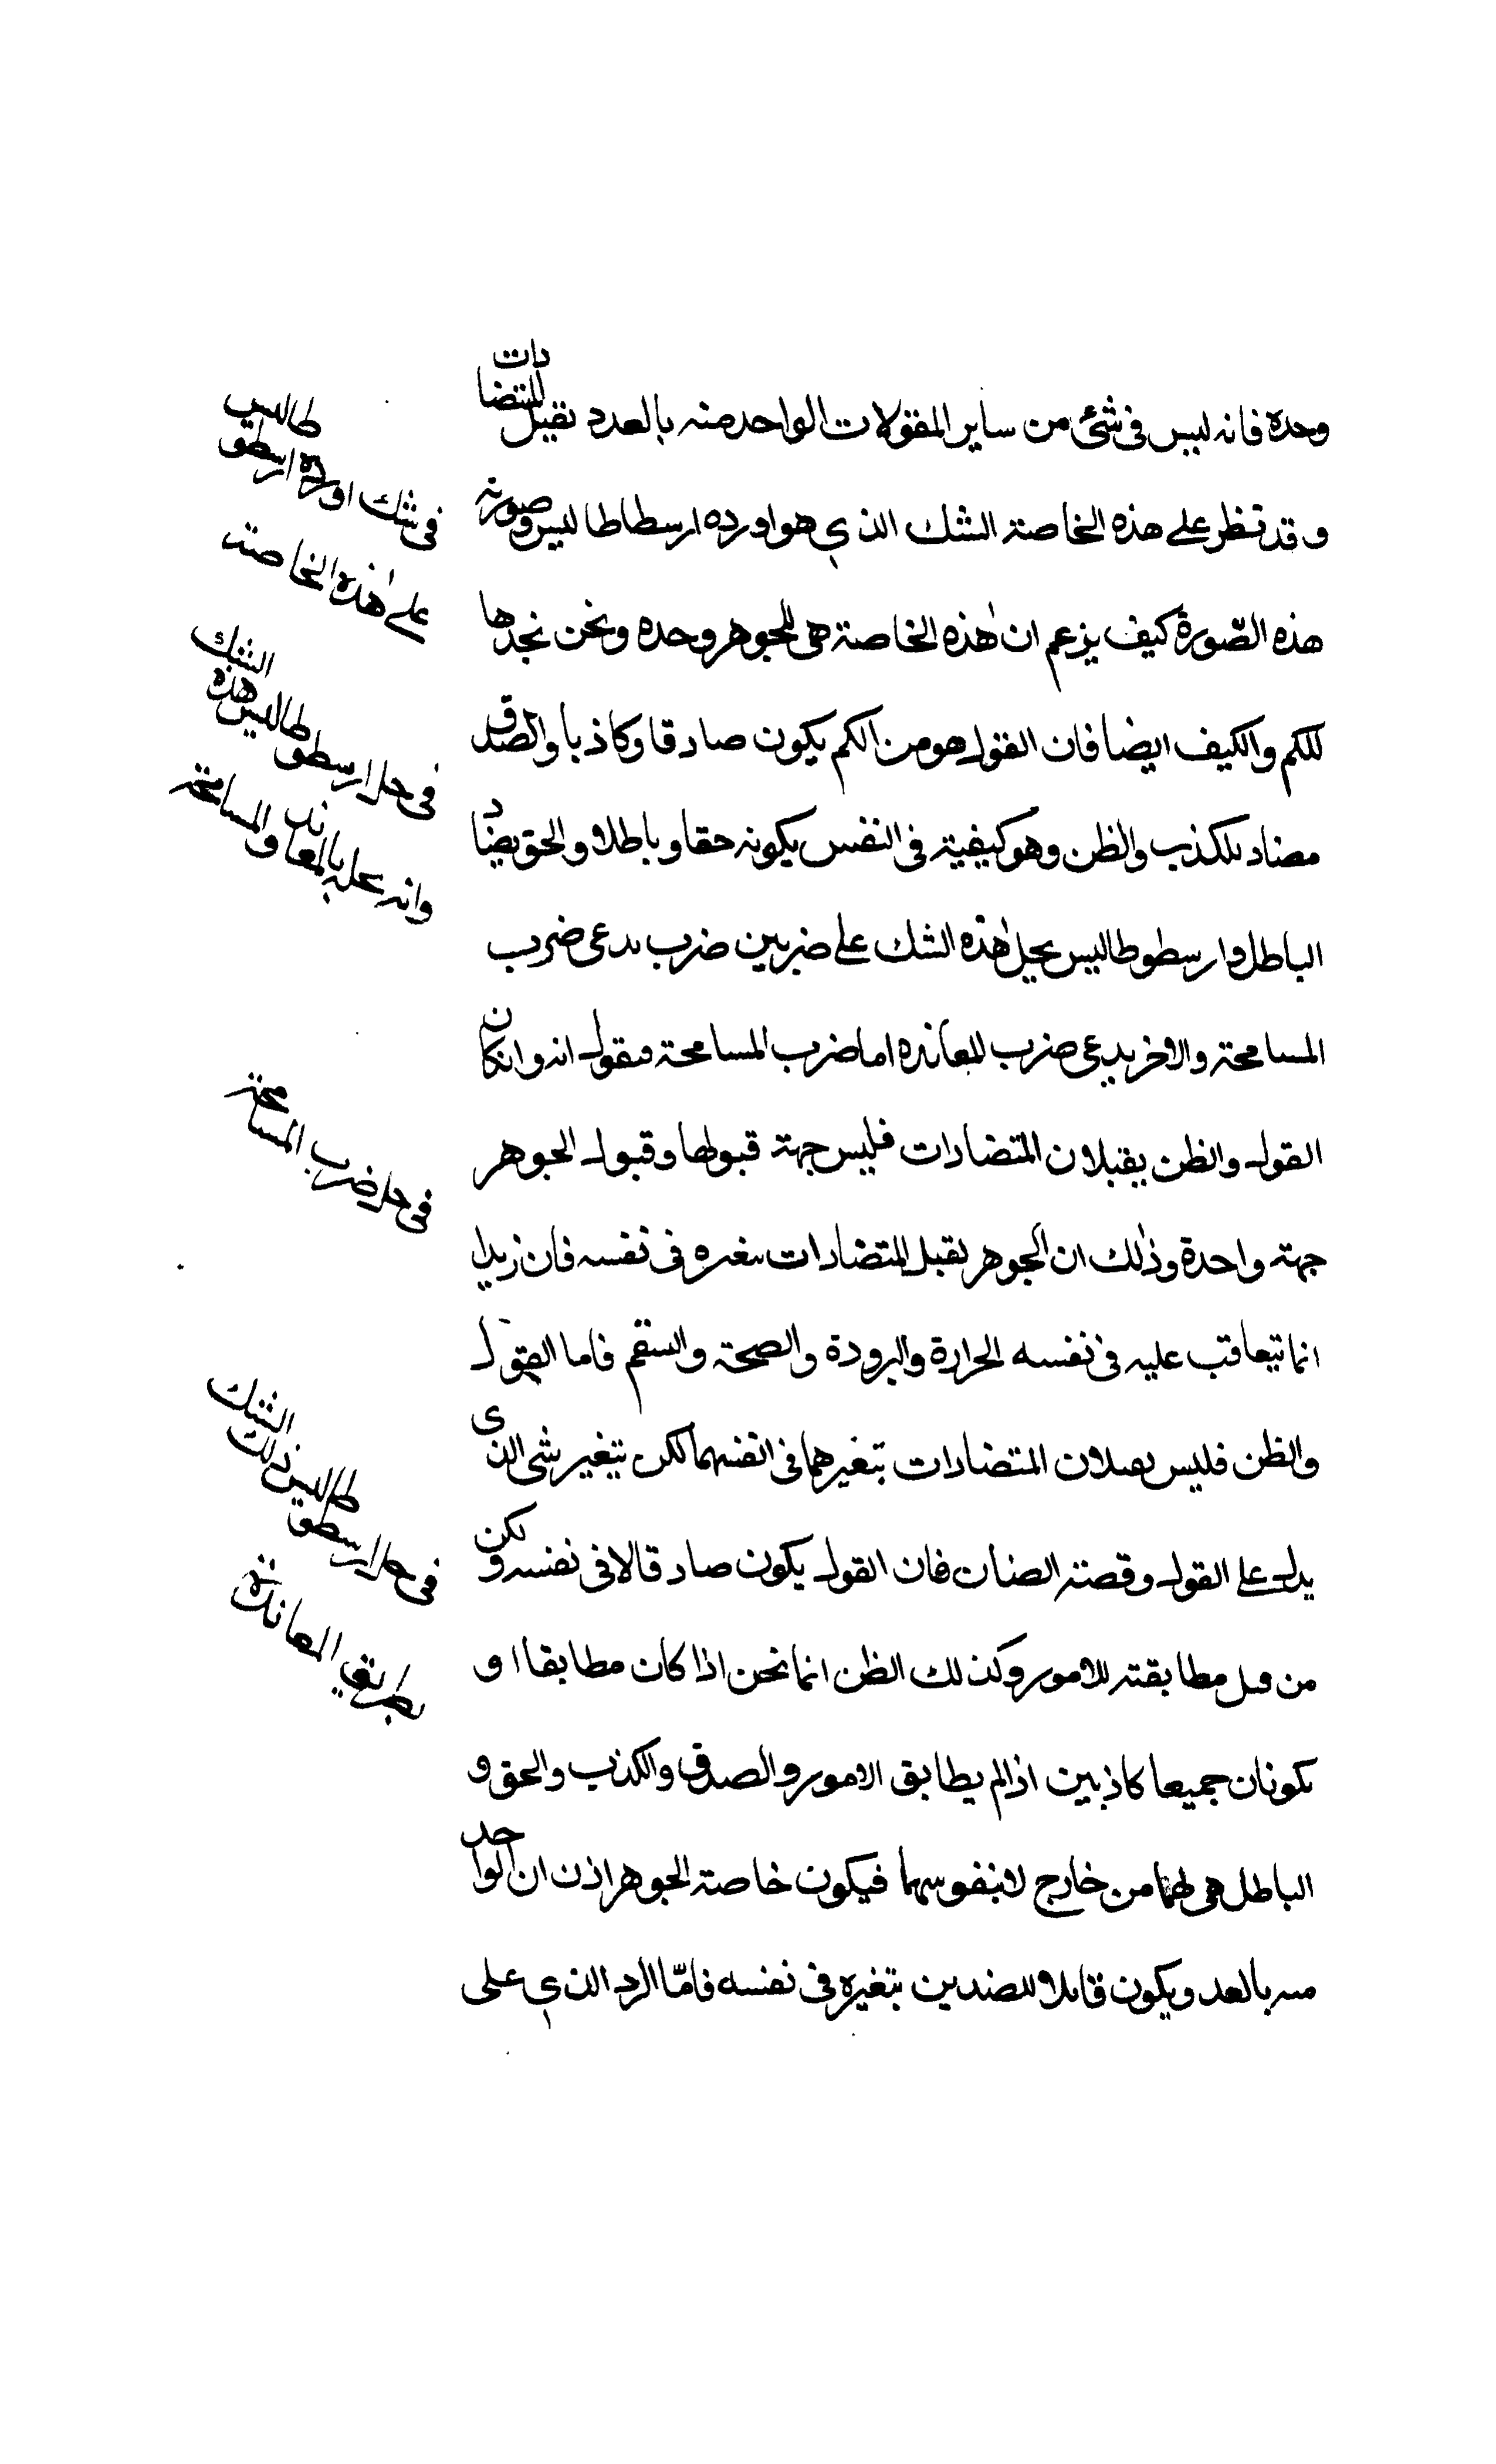 وحده فانه ليس فى شئ من ساير المقولات الواحد منه بالعدد يقبل للمتضادات
و قد تنظر على هذه الخاصة الشك الذي هو اورده ارسطاطاليس وصورته
هذه الصّورة كيف يزعم ان هذه الخاصة هى للجوهر وحده ونحن نجدها
للكم والكيف ايضا فان القول هو من الكم يكون صادقا وكاذبا والصدق
مضاد للكذب والظن وهو كيفية فى النفس يكونه حقا وباطلا والحق يضاد
الباطل وارسطوطاليس يحيل هذه الشك على ضربين ضرب يدعى ضرب
المسامحة والاخر يدعى ضرب المعانده اما ضرب المسامحة فيقول انه وانكان
القول والظن يقبلان المتضادات فليس جهة قبولها وقبول الجوهر
جهة واحدة وذلك ان الجوهر يقبل المتضادات بتغيره فى نفسه فان زيدا
انما تيعاقب عليه فى نفسه الحرارة والبرودة والصحة والسقم فاما القول
والظن فليس يقبلان المتضادات بتغيرهما فى انفسهما لكن بتغير شى الذى
يدل على القول وقصته الضان فان القول يكون صادقا لا فى نفسه ولكن
من قبل مطابقته للامور وكذلك الظن انما نحن اذا كان مطابقا او
يكونان جميعا كاذبين اذا لم يطابق الامور والصدق والكذب والحق و
الباطل هى لهما من خارج لا بنفوسهما فيكون خاصة الجوهر اذن ان الواحد
منه بالعدد ويكون قابلا للضدين بتغيره فى نفسه فامّا الرد الذي على
فى شك اورده ارسطوطاليس
على هذه الخاصة
فى حل ارسطوطاليس هذه الشك
وانه عله بالمعاند والمسامحة
فى حل ضرب المسامحة
فى حل ارسطوطاليس ذلك الشك
بطريق المعاندة